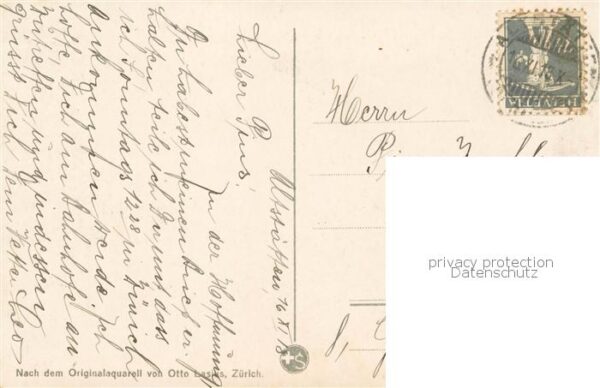 Altstätten, 16 XI 13
Lieber Pius!
In der Hoffnung
Du habest meinen Brief er-
halten teile ich Dir mit dass
ich Sonntags 12 28 in Zürich
ankommen werde. Ich
hoffe Dich am Bahnhofe an-
zutreffen und indessen
grüsst Dich Dein Vetter Leo
Herrn
HELVETIA
privacy protection
Datenschutz
Nach dem Originalaquarell von Otto Lasius, Zürich.